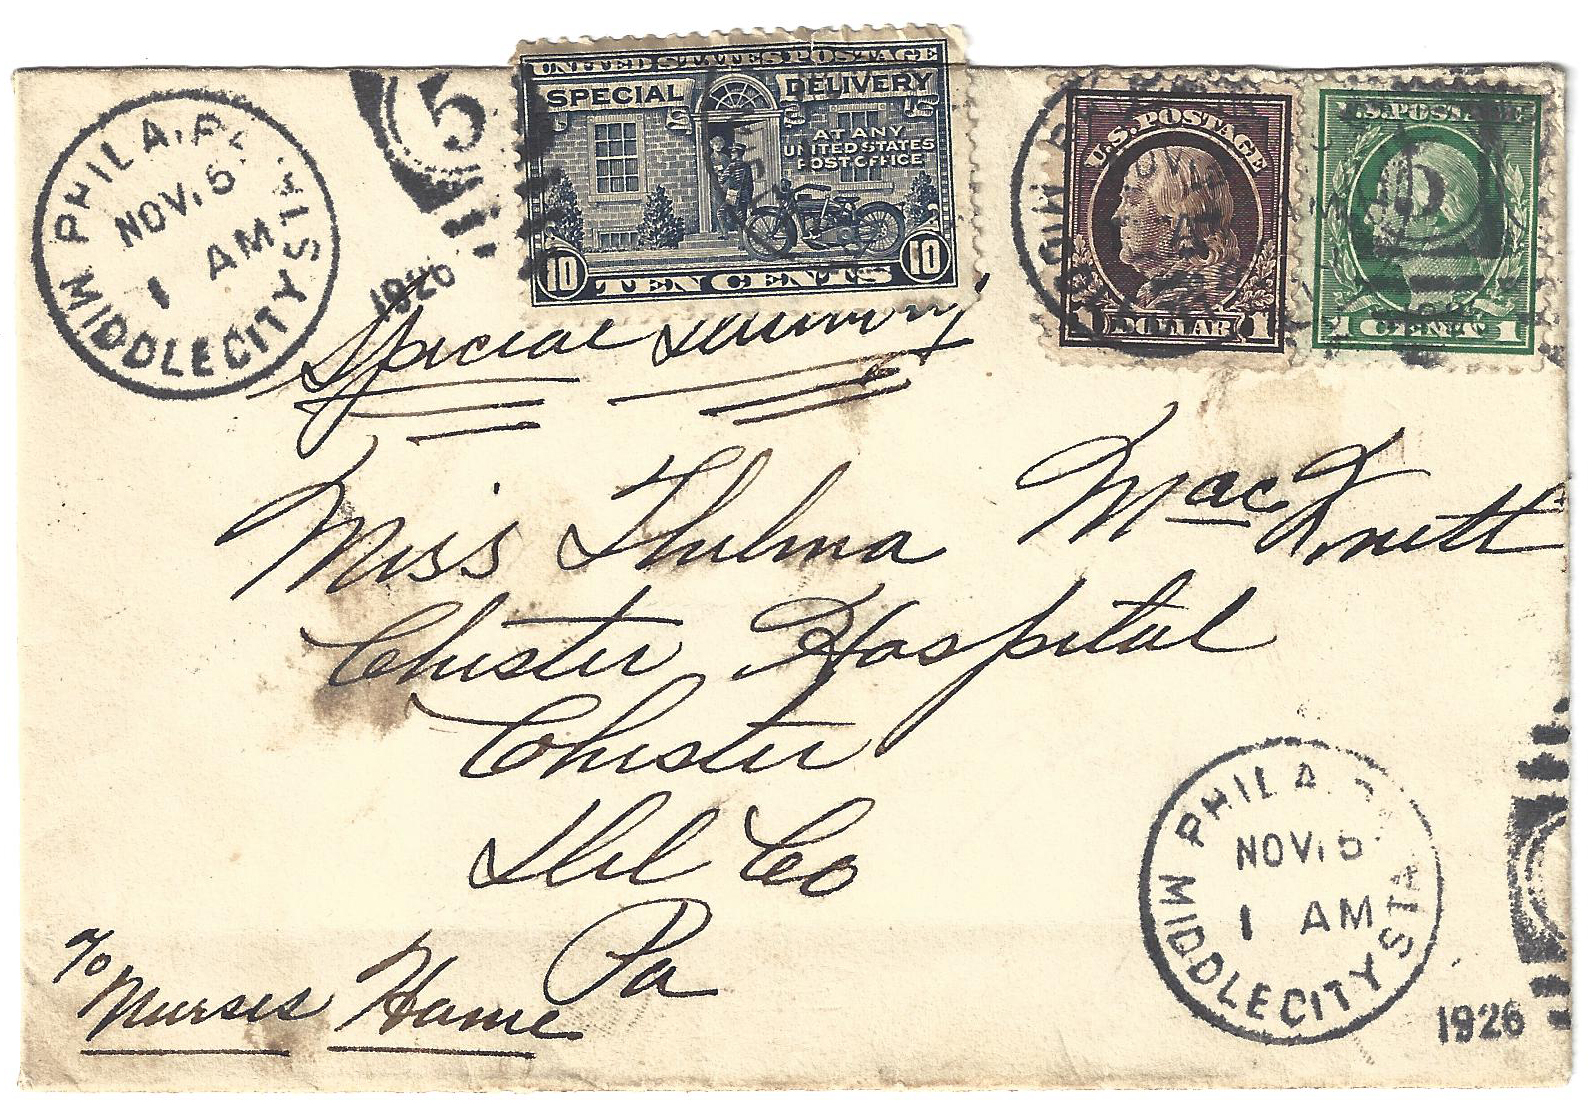 PHILA. PA.
NOV. 6
1 AM
MIDDLE CITY STA
5
1926
UNITED STATES POSTAGE
SPECIAL DELIVERY
AT ANY
UNITED STATES
POST OFFICE
10 TEN CENTS 10
U.S. POSTAGE
1 DOLLAR 1
U.S. POSTAGE
1 CENT 1
5
Special Delivery
Miss Thelma MacKnett
Chester Hospital
Chester
Del Co
Pa
c/o
Nurses Home
PHILA. PA.
NOV. 6
1 AM
MIDDLE CITY STA
1926